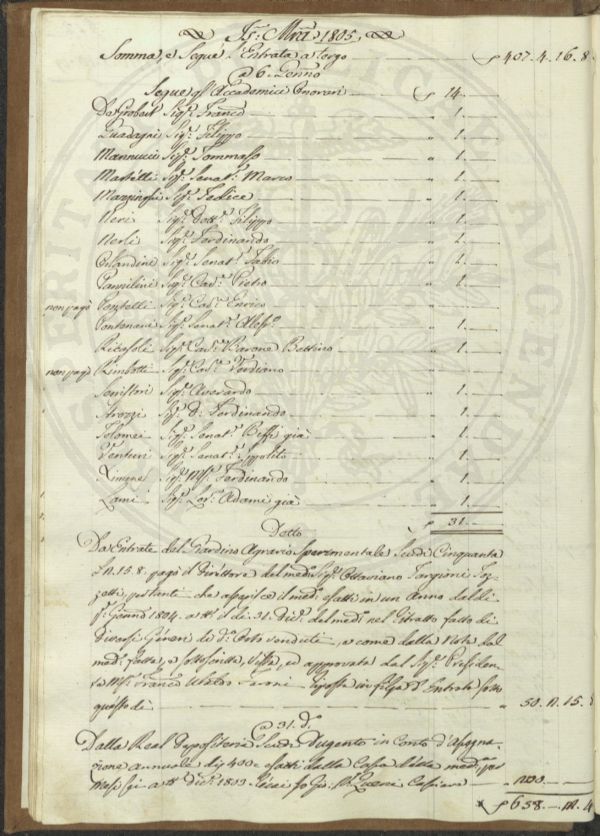 1805
Somma, e Segue l'Entrata a tergo 407. 4. 16. 8
a 6. Genno
Segue gl' Accademici Onorari 14.
Da Sigr. Franco 1.
Guadagni Sigr. Filippo 1.
Mannucci Sigr. Tommaso 1.
Martelli Sigr. Senatr. Marco 1.
Sigr. Felice 1.
Neri Sigr. Dottr. Filippo 1.
Nerli Sigr. Ferdinando 1.
Orlandini Sigr. Senatr. Fabio 1.
Pannilini Sigr. Cavr. Pietro 1.
non pagò Sigr. Cavr. Enrico
Sigr. Senatr. Alessº 1.
Ricasoli Sigr. Cavr. Barone Bettino 1.
non pagò Rimbotti Sigr. Cavr.
Serristori Sigr. Averardo 1.
Strozzi Sigr. Dn. Ferdinando 1.
Tolomei Sigr. Senatr. Biffi già 1.
Venturi Sigr. Senatr. Ippolito 1.
Ximenes Sigr. Ferdinando 1.
Lami Sigr. Adami già 1.
31.
Detto
Da Entrate del Giardino Agrario Sperimentale Scudi Cinquanta
15. 8. pagò il Direttore del medo. Sigr. Ottaviano Targioni Toz
zetti, che apparisce il medo. esatti in un Anno dal dì
Genno 1804. a tto. il dì 31. Dice. del medo. nel Ritratto fatto di
diversi Generi di do. Orto venduti, e come della Nota dal
medo. fatta, e sottoscritta, vista, ed approvata dal Sigr. Presiden
te Franco Ubaldo Feroni riposta in filza d'Entrata sotto
questo dì 50. 15.
a 31. do.
Dalla Real Depositeria Scudi Dugento in conto d'Assegna
zione annuale di 400 esatti dalla Cassa della meda. per
mesi sei a tto. Dice. 1803 200.
658.